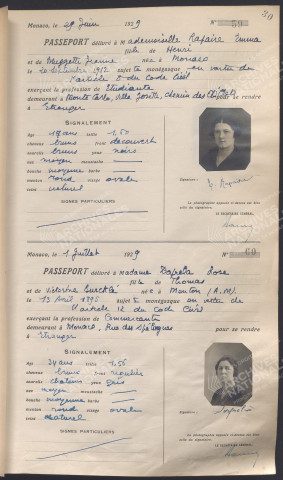 30
Monaco, le 29 Juin 1929 N° 59
PASSEPORT délivré à Mademoiselle Rapaire Emma
fille de Henri
et de Muggetti Jeanne née à Monaco
le 20 Septembre 1912 sujette monégasque en vertu de
l'article 8 du Code Civil
exerçant la profession de Etudiante
demeurant à Monte-Carlo, Villa Josette, Chemin des pour se rendre
à Etranger
SIGNALEMENT
Age 19 ans taille 1,50
cheveux bruns front découvert
sourcils bruns yeux noirs
nez moyen moustache
bouche moyenne barbe
menton rond visage ovale
teint naturel
SIGNES PARTICULIERS
Signature :
La photographie apposée ci-dessus est revêtue
de signature.
LE SECRÉTAIRE GÉNÉRAL,
Monaco, le 1 Juillet 1929 N° 60
PASSEPORT délivré à Madame Dapela Rose
fille de Thomas
et de née à Menton (A.M.)
le 13 Avril 1895 sujette monégasque en vertu de
l'article 12 du Code Civil
exerçant la profession de Commerçante
demeurant à Monaco, Rue des pour se rendre
à Etranger
SIGNALEMENT
Age 34 ans taille 1,56
cheveux bruns front régulier
sourcils chatains yeux gris
nez moyen moustache
bouche moyenne barbe
menton rond visage ovale
teint naturel
SIGNES PARTICULIERS
Signature :
La photographie apposée ci-dessus est revêtue
de signature.
LE SECRÉTAIRE GÉNÉRAL,